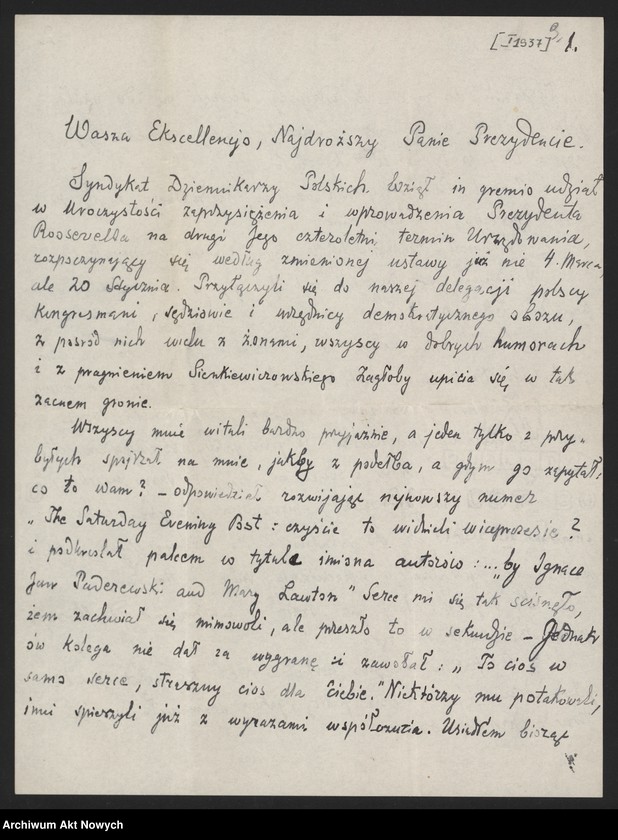 [I 1937] 1.
Wasza Ekscellencjo, Najdroższy Panie Prezydencie.
Syndykat Dziennikarzy Polskich wziął in gremio udział
w Uroczystości zaprzysiężenia i wprowadzenia Prezydenta
Roosevelta na drugi Jego czteroletni termin Urzędowania,
rozpoczynający się według zmienionej ustawy już nie 4. Marca,
ale 20 Stycznia. Przyłączyli się do naszej delegacji polscy
kongresmani, sędziowie i urzędnicy demokratycznego obozu,
z pośród nich wielu z żonami, wszyscy w dobrych humorach
i z pragnieniem Sienkiewiczowskiego Zagłoby upicia się w tak
zacnem gronie.
Wszyscy mnie witali bardzo przyjaźnie, a jeden tylko z przy-
byłych spojrzał na mnie, jakby z podełba, a gdym go zapytał:
co to wam? – odpowiedział rozwijając najnowszy numer
"The Saturday Evening Post: czyście to widzieli wiceprezesie?
i podkreślał palcem w tytule imiona autorów: ..."by Ignace
Jan Paderewski and Mary Lawton" Serce mi się tak scisnęło,
żem zachwiał się mimowoli, ale przeszło to w sekundzie – Jednakż
ów kolega nie dał za wygranę i zawołał: "To cios w
samo serce, straszny cios dla Ciebie." Niektórzy mu potakowali,
inni spieszyli już z wyrazami współczucia. Usiadłem biorąc
Archiwum Akt Nowych